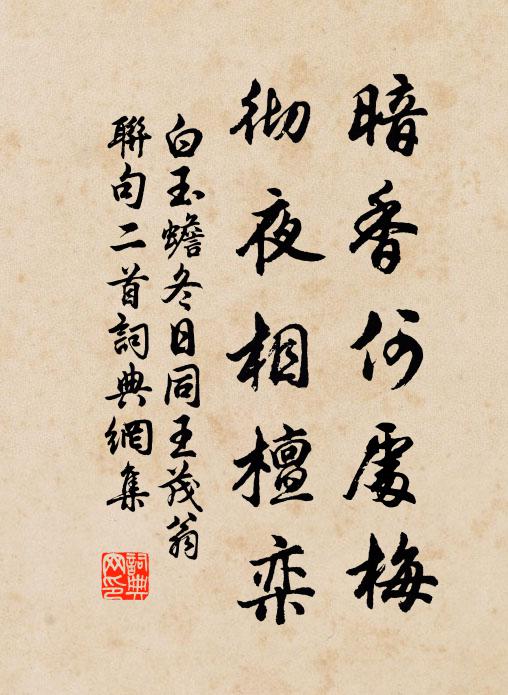 暗香何處梅
彻夜相檀栾
白玉蟾冬日同王茂翁
聯句二首詞典網集
詞典網印